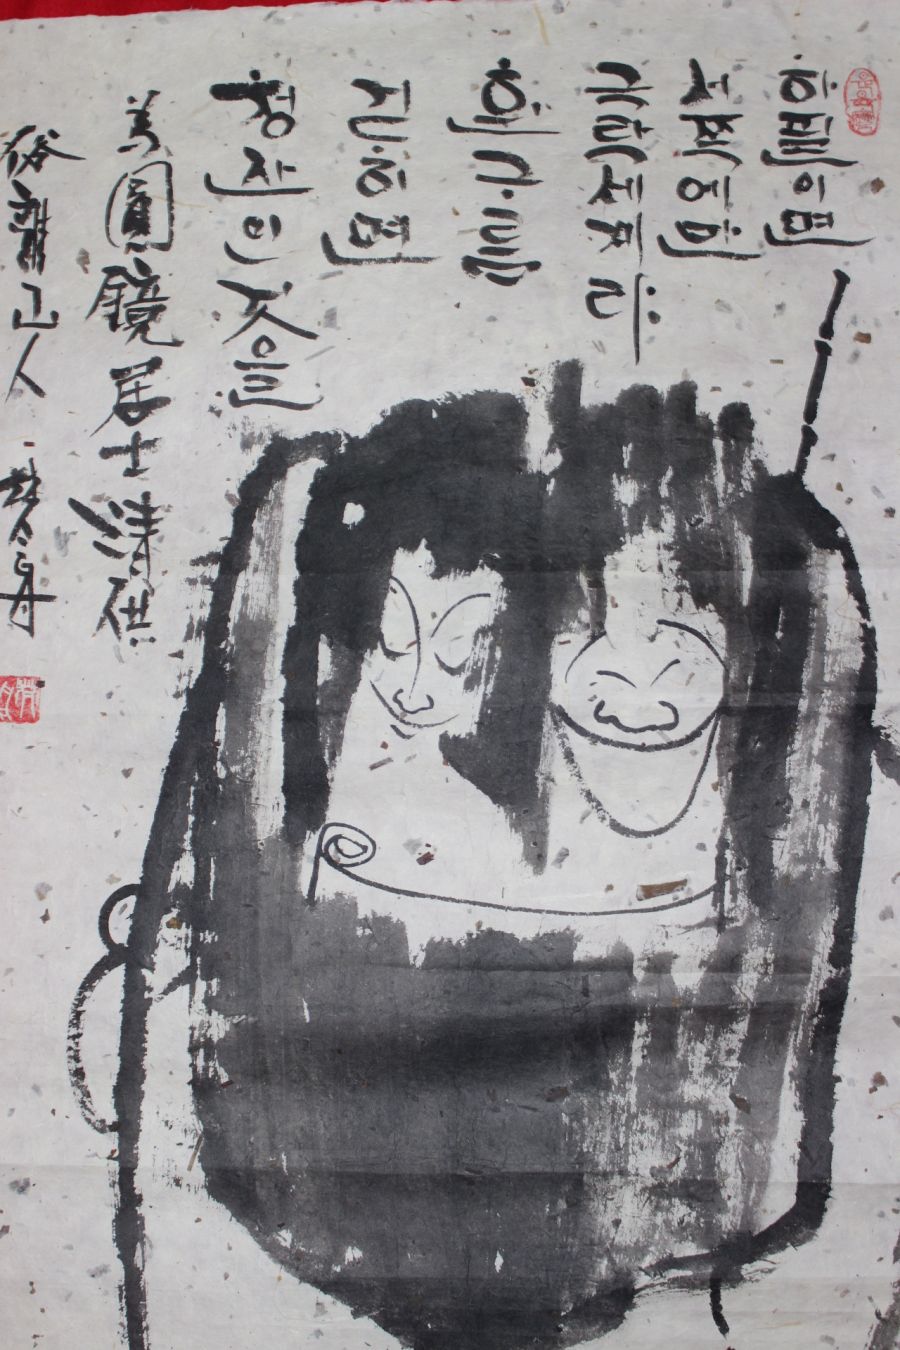 하필이면
서쪽에만
극락세계랴
흰구름
걷히면
청산인 것을
為圓鏡居士清供
俗離山人